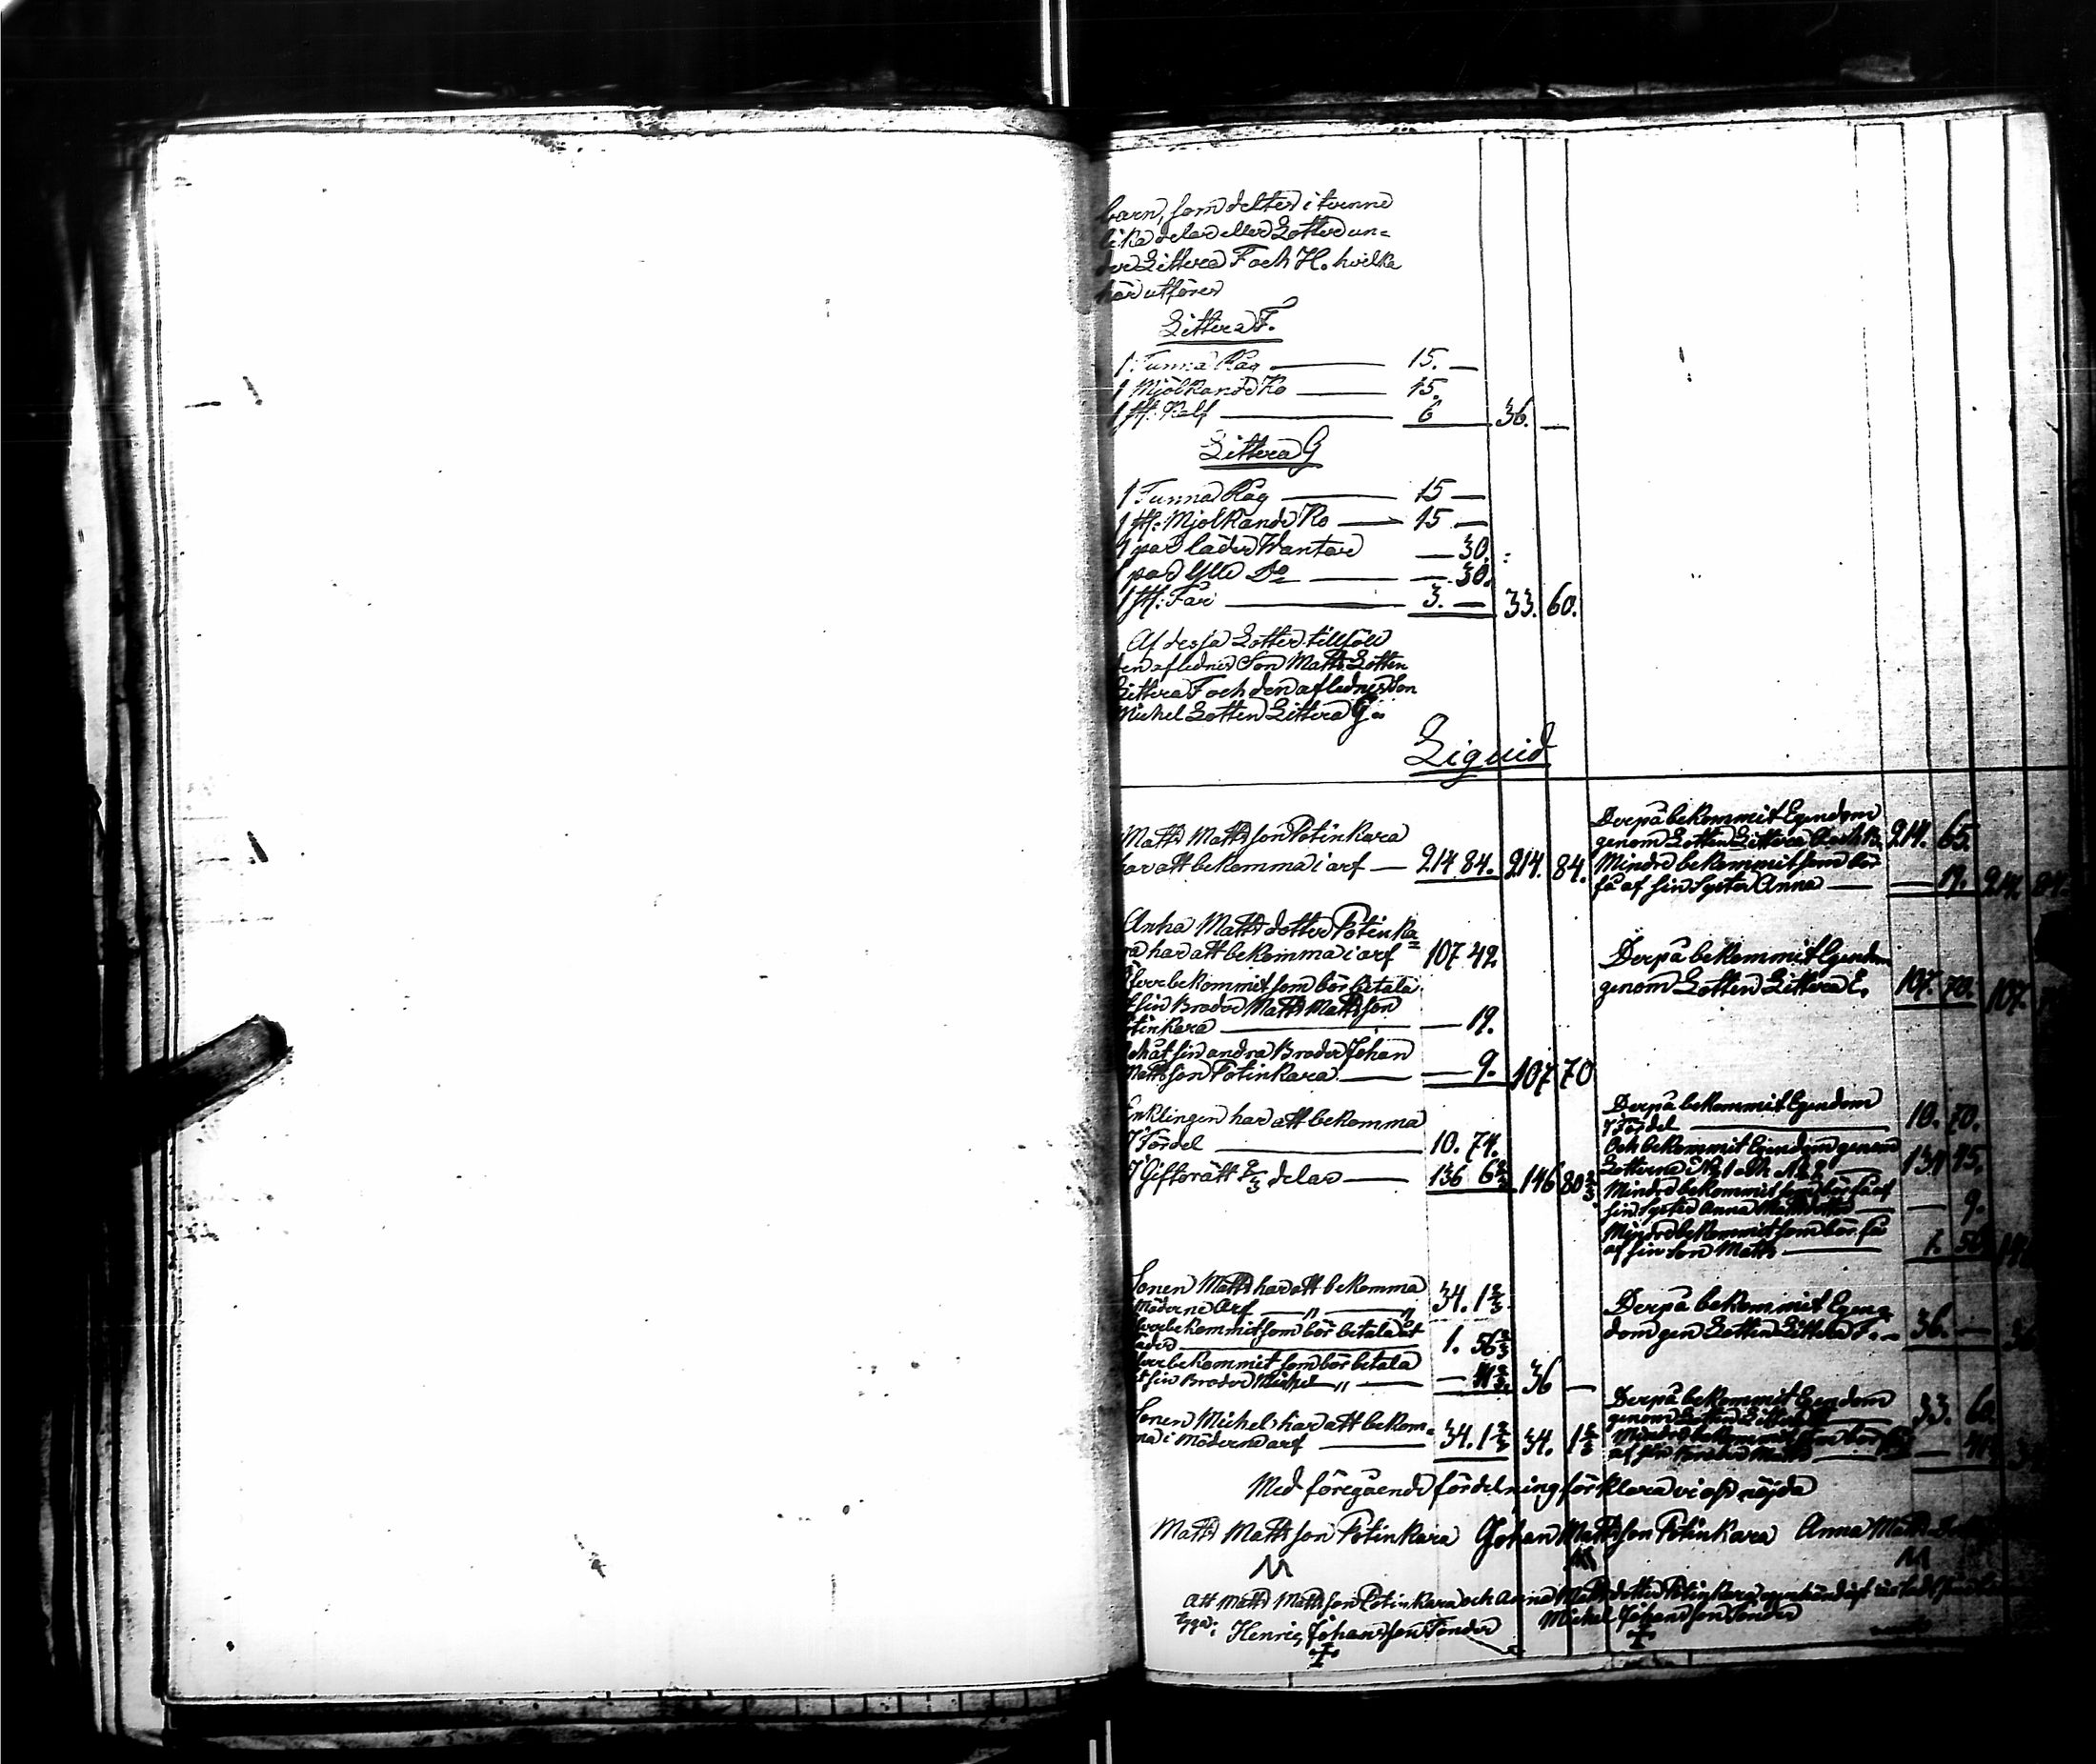 barn, som deltes i tvenne
lika delar eller Lotter un=
der Littera F och H. hvilka
här utföres
Littera F.
1 Tunna Råg — 15. —
1 Mjölkande Ko — 15.
1 st: Kalf — 6 36. —
Littera G
1 Tunna Råg — 15 —
1 st: Mjölkande Ko — 15 —
1 par läder Wantar — 30.
1 par Ylle Do — 30.
1 st: Får — 3. — 33. 60.
Af dessa Lotter tillföll
den aflednes Son Matts Lotten
Littera F och den aflednes Son
Michel Lotten Littera G.
Liquid
Matts Mattsson Potinkara
har att bekomma i arf — 214 84. 214. 84.
Derpå bekommit Egendom
genom Lotten Littera 214. 65.
Mindre bekommit som bör
få af sin Syster Anna — 19. 214. 84.
Anna Mattsdotter Potinka=
ra har att bekomma i arf 107 42
Öfverbekommit som bör betala
åt sin Broder Matts Mattsson
Potinkara — 19.
och åt sin andra Broder Johan
Mattsson Potinkara — 9. 107 70
Derpå bekommit Egendom
genom Lotten Littera E. 107. 70. 107.
Enklingen har att bekomma
i Fördel — 10. 74.
i Giftorätt 2/3 delar — 136 6 2/3 146 80 2/3
Derpå bekommit Egendom
i Fördel — 10. 70.
Och bekommit Egendom genom
Lotterna No 1 och No 2 134 95.
Mindre bekommit som bör få af
sin Syster Anna Mattsdotter — 9.
Mindre bekommit som bör få
af sin Son Matts — 1. 56
Sonen Matts har att bekomma
i Möderne Arf — 34. 1 2/3
Öfverbekommit som bör betala åt
Fader — 1. 56 2/3
Öfverbekommit som bör betala
åt sin Broder Michel — 41 2/3. 36 —
Derpå bekommit Egen=
dom gen Lotten Littera F. — 36. — 36
Sonen Michel har att bekom=
ma i Möderne arf — 34. 1 2/3 34. 1 2/3
Derpå bekommit Egendom
genom Lotten Littera 33. 60.
Mindre bekommit som bör få
af sin Broder Matts — 41
Med föregående fördelning förklara vi oss nöjda
Matts Mattsson Potinkara Johan Mattsson Potinkara Anna Matts
Att Matts Mattsson Potinkara och Anna Mattsdotter Potinkara egenhändigt
bygga: Henric Johansson Tonder Michel Johansson Tonder